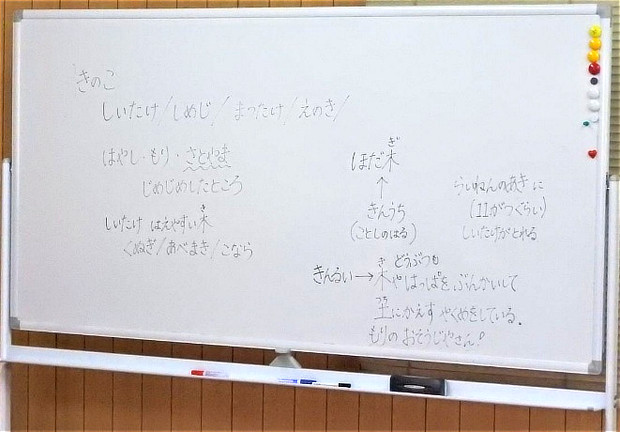 きのこ
しいたけ/しめじ/まったけ/えのき/
はやし・もり・さとやま
じめじめしたところ
しいたけ はえやすい木
き
くぬぎ/あべまき/こなら
ぎ
ほだ木
↑
きんうち
(ことしのはる)
らいねんのあきに
(11がつぐらい)
しいたけがとれる
き どうぶつも
きんるい→木やはっぱをぶんかいして
つち
土にかえすやくめをしている。
もりのおそうじやさん!